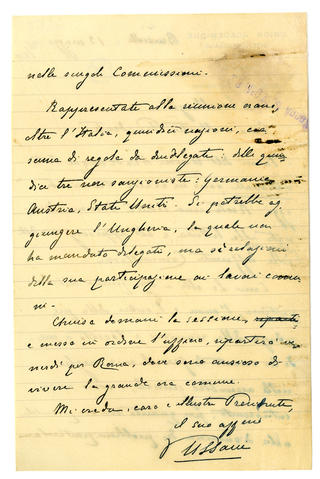 nelle singole Commissioni.
Rappresentate alla riunione erano,
oltre l'Italia, quindici nazioni, cia-
scuna di regola da due delegati: delle quin-
dici tre non sanzioniste: Germania
Austria, Stati Uniti. Si potrebbe ag-
giungere l'Ungheria, la quale non
ha mandato delegati, ma sì relazioni
della sua partecipazione ai lavori comu-
ni.
Chiusa domani la sessione,
e messo in ordine l'ufficio, ripartirò ve-
nerdì per Roma, dove sono ansioso di
vivere la grande ora comune.
Mi creda, caro e illustre Presidente,
il suo affmo
Ussani